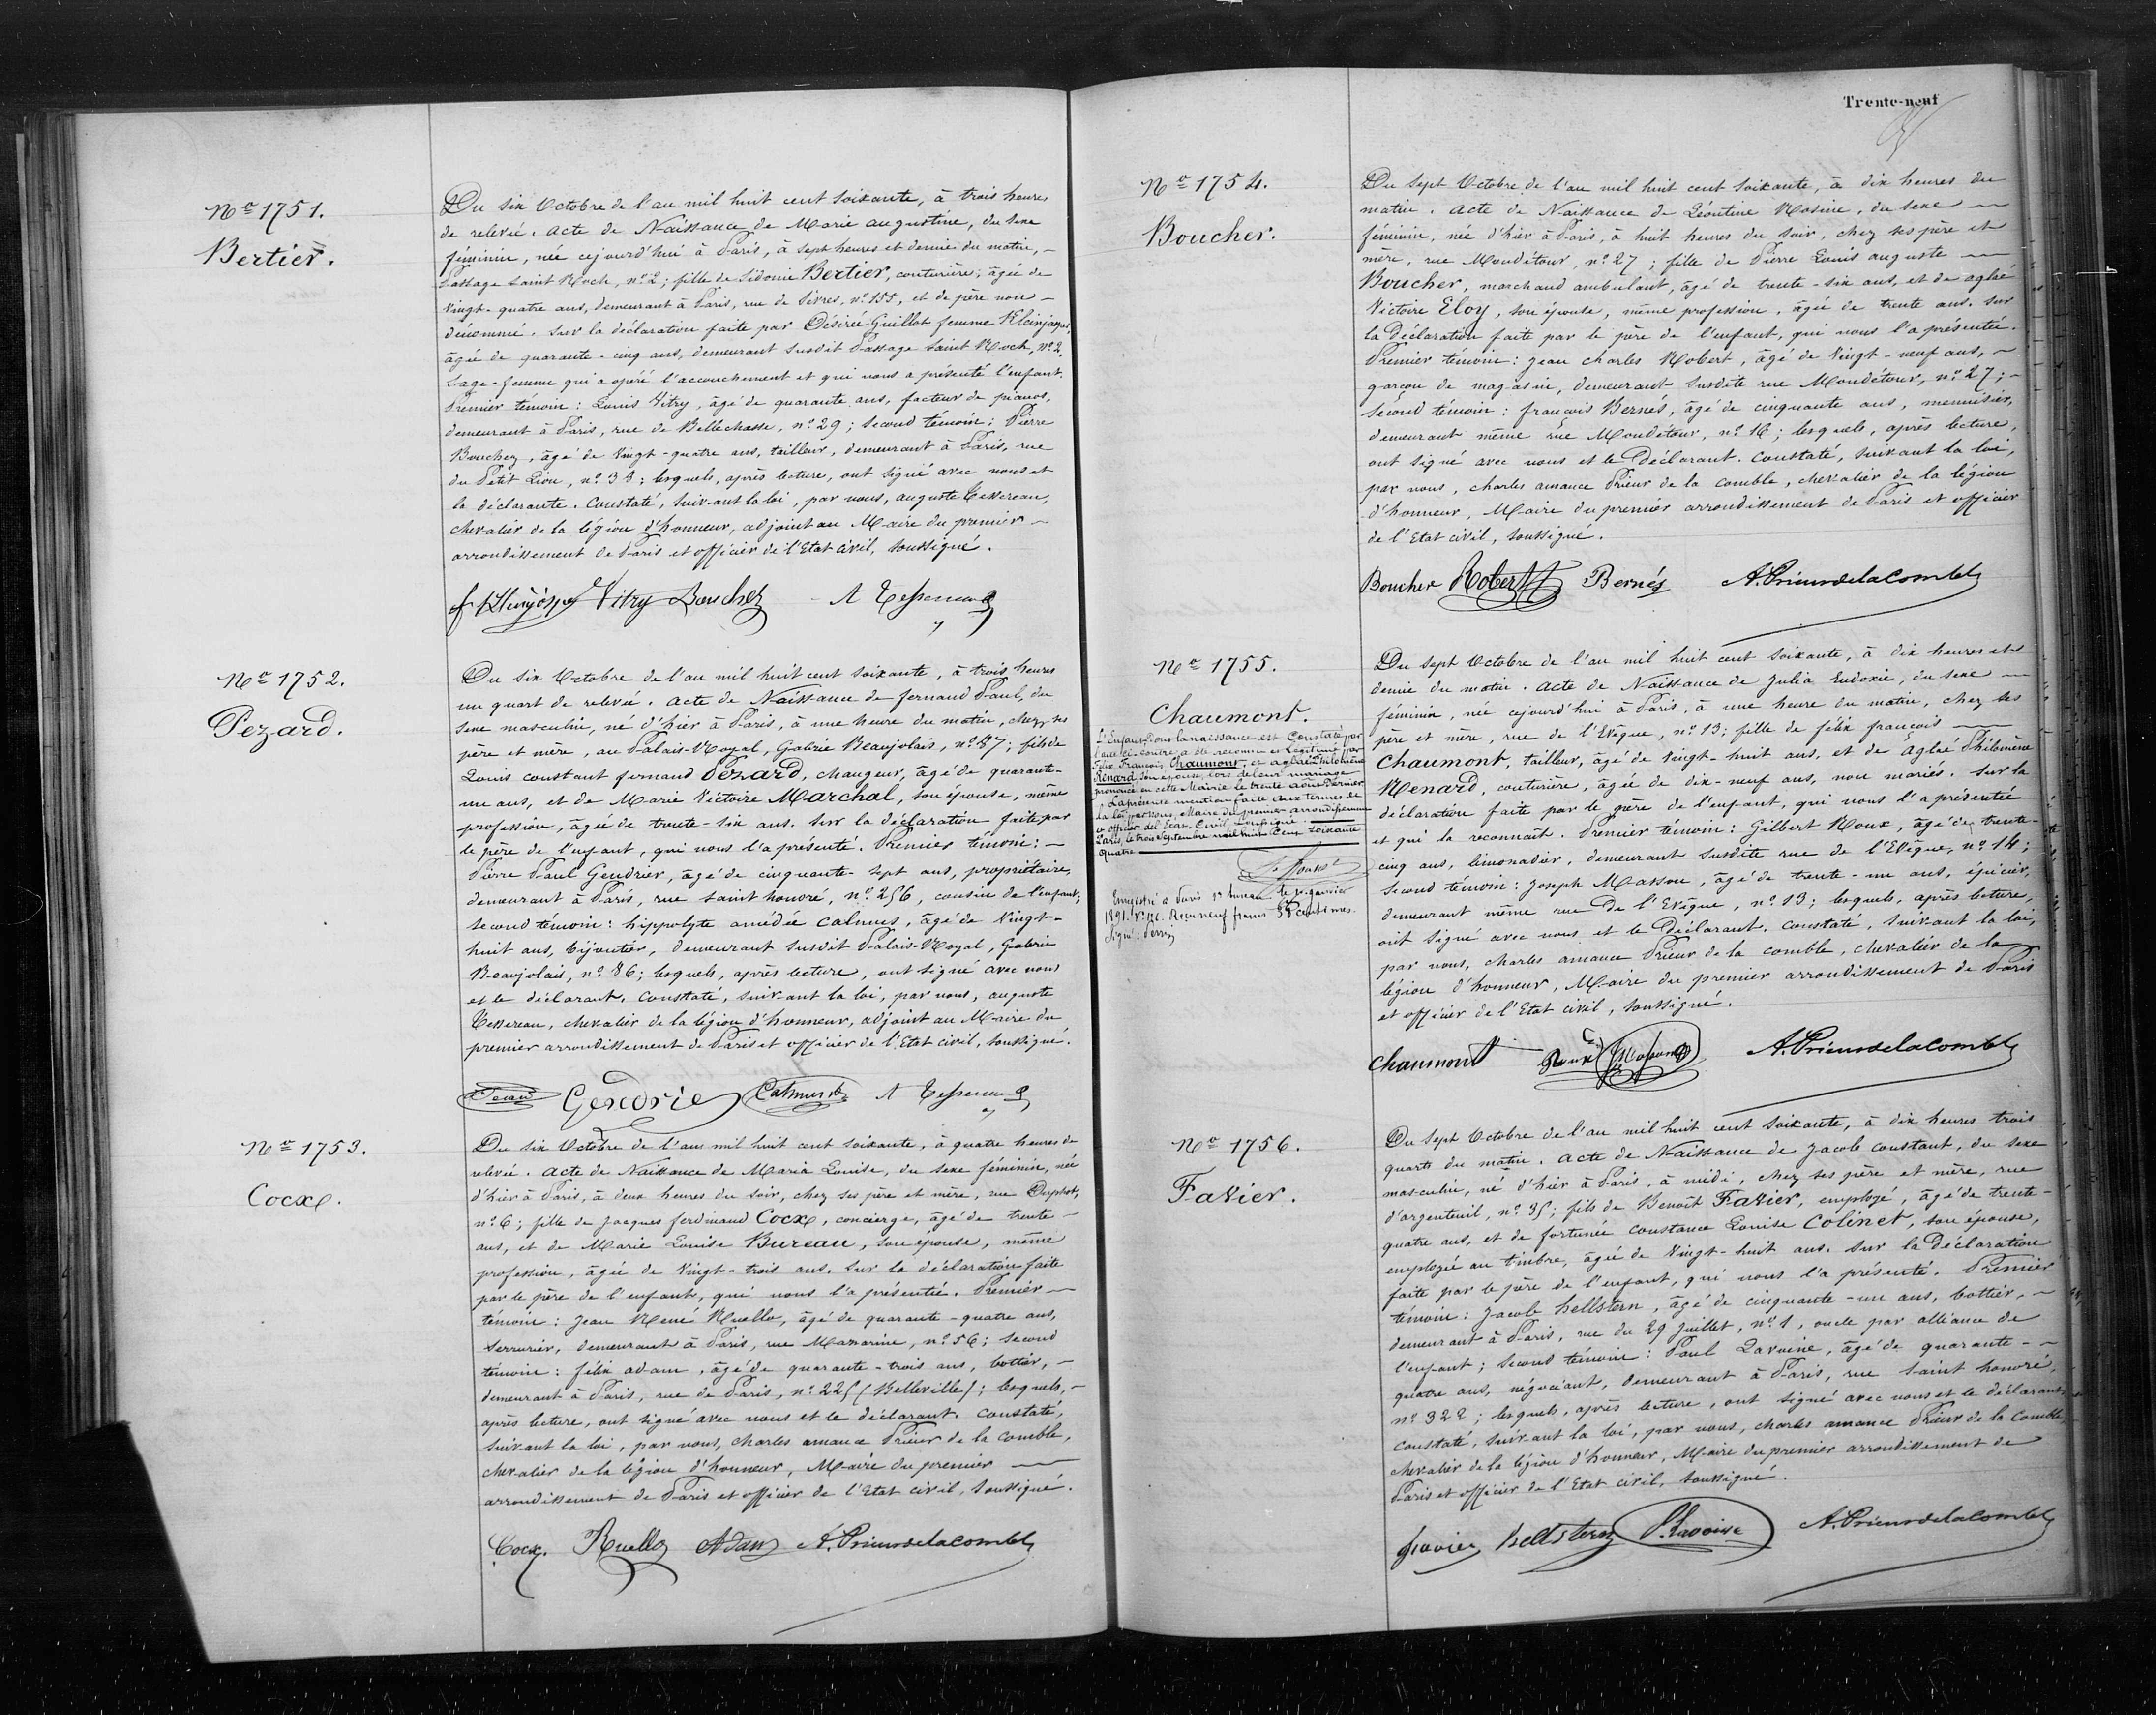 Nº 1751.
Bertier.
Du six Octobre de l'an mil huit cent soixante, à trois heures
de relevée. acte de Naissance de Marie augustine, du sexe
féminin, née cejourd'hui à Paris, à sept heures et demie du matin, -
Passage Saint Roch, nº 2; fille de Sidonie Bertier, couturière, âgée de
vingt-quatre ans, demeurant à Paris, rue de Sèvres, nº 155, et de père non -
dénommé. Sur la déclaration faite par Désirée Guillot femme Kleinjasper,
âgée de quarante-cinq ans, demeurant susdit Passage Saint Roch, nº 2,
Sage-femme qui a opéré l'accouchement et qui nous a présenté l'enfant.
Premier témoin: Louis Vitry, âgé de quarante ans, facteur de pianos,
demeurant à Paris, rue de Bellechasse, nº 29; second témoin: Pierre
Bouchez, âgé de vingt-quatre ans, tailleur, demeurant à Paris, rue
du Petit Lion, nº 33; lesquels, après lecture, ont signé avec nous et
la déclarante. Constaté, suivant la loi, par nous, auguste Tessereau,
chevalier de la légion d'honneur, adjoint au Maire du premier -
arrondissement de Paris et officier de l'Etat civil, soussigné.
Vitry Bouchez A Tessereau
Nº 1752.
Pezard.
Du six Octobre de l'an mil huit cent soixante, à trois heures
un quart de relevée. acte de Naissance de fernand Paul, du
sexe masculin, né d'hier à Paris, à une heure du matin, chez ses
père et mère, au Palais-Royal, Galerie Beaujolais, nº 87; fils de
Louis constant fernand Pezard, changeur, âgé de quarante-
un ans, et de Marie Victoire Marchal, son épouse, même
profession, âgée de trente-six ans. Sur la déclaration faite par
le père de l'enfant, qui nous l'a présenté. Premier témoin: -
Pierre Paul Gendrier, âgé de cinquante-sept ans, propriétaire,
demeurant à Paris, rue saint honoré, nº 256, cousin de l'enfant;
second témoin: hippolyte amédée calmus, âgé de vingt-
huit ans, bijoutier, demeurant susdit Palais-Royal, Galerie
Beaujolais, nº 86; lesquels, après lecture, ont signé avec nous
et le déclarant. Constaté, suivant la loi, par nous, auguste
Tessereau, chevalier de la légion d'honneur, adjoint au Maire du
premier arrondissement de Paris et officier de l'Etat civil, soussigné.
Pezard Gendrier Calmus A Tessereau
Nº 1753.
Cocx.
Du six Octobre de l'an mil huit cent soixante, à quatre heures de
relevée. acte de Naissance de Maria Louise, du sexe féminin, née
d'hier à Paris, à deux heures du soir, chez ses père et mère, rue Duphot,
nº 6; fille de Jacques ferdinand Cocx, concierge, âgé de trente -
ans, et de Marie Louise Bureau, son épouse, même
profession, âgée de vingt-trois ans. Sur la déclaration faite
par le père de l'enfant, qui nous l'a présentée. Premier -
témoin: Jean René Ruello, âgé de quarante-quatre ans,
serrurier, demeurant à Paris, rue Mazarine, nº 56; second
témoin: félix adam, âgé de quarante-trois ans, bottier, -
demeurant à Paris, rue de Paris, nº 225 (Belleville); lesquels, -
après lecture, ont signé avec nous et le déclarant. Constaté,
suivant la loi, par nous, charles amance Prieur de la comble,
chevalier de la légion d'honneur, Maire du premier -
arrondissement de Paris et officier de l'Etat civil, soussigné.
Cocx. Ruello Adam A. Prieur de la comble
Trente-neuf
Nº 1754.
Boucher.
Du sept Octobre de l'an mil huit cent soixante, à dix heures du
matin. acte de Naissance de Léontine Rosine, du sexe -
féminin, née d'hier à Paris, à huit heures du soir, chez ses père et
mère, rue Mondétour, nº 27; fille de Pierre Louis auguste -
Boucher, marchand ambulant, âgé de trente-six ans, et de aglaé
Victoire Eloy, son épouse, même profession, âgée de trente ans. Sur
la déclaration faite par le père de l'enfant, qui nous l'a présentée.
Premier témoin: Jean charles Robert, âgé de vingt-neuf ans, -
garçon de magasin, demeurant susdite rue Mondétour, nº 27; -
second témoin: françois Bernès, âgé de cinquante ans, menuisier,
demeurant même rue Mondétour, nº 16; lesquels, après lecture,
ont signé avec nous et le Déclarant. Constaté, suivant la loi,
par nous, charles amance Prieur de la comble, chevalier de la légion
d'honneur, Maire du premier arrondissement de Paris et officier
de l'Etat civil, soussigné.
Boucher Robert Bernés A. Prieur de la comble
Nº 1755.
Chaumont.
L'Enfant dont la naissance est Constatée par
l'acte ci-contre a été reconnu et Légitimé par
Félix François Chaumont et aglaé Philomène
Rénard son épouse, lors de leur mariage
prononcé en cette Mairie le trente août dernier
La présente mention faite aux termes de
la loi par nous, Maire du premier arrondissement
et officier de l'Etat Civil, soussigné.
Paris, le trois Septembre mil huit Cent soixante
quatre
Enregistré à Paris
1891. Reçu neuf francs 38 centimes.
Signé:
Du sept Octobre de l'an mil huit cent soixante, à dix heures et
demie du matin. acte de Naissance de Julia Eudoxie, du sexe -
féminin, née cejourd'hui à Paris, à une heure du matin, chez ses
père et mère, rue de l'Evêque, nº 13; fille de félix françois -
Chaumont, tailleur, âgé de vingt-huit ans, et de aglaé Philomène
Renard, couturière, âgée de dix-neuf ans, non mariés. Sur la
déclaration faite par le père de l'enfant, qui nous l'a présentée
et qui la reconnaît. Premier témoin: Gilbert Roux, âgé de trente-
cinq ans, limonadier, demeurant susdite rue de l'Evêque, nº 14;
second témoin: Joseph Masson, âgé de trente-un ans, épicier,
demeurant même rue De l'Evêque, nº 13; lesquels, après lecture,
ont signé avec nous et le Déclarant. Constaté, suivant la loi,
par nous, charles amance Prieur de la comble, chevalier de la
légion d'honneur, Maire du premier arrondissement de Paris
et officier de l'Etat civil, soussigné.
Chaumont Roux Masson A. Prieur de la comble
Nº 1756.
Favier.
Du sept Octobre de l'an mil huit cent soixante, à dix heures trois
quarts du matin. acte de Naissance de Jacob constant, du sexe
masculin, né d'hier à Paris, à midi, chez ses père et mère, rue
d'argenteuil, nº 35; fils de Benoît Favier, employé, âgé de trente-
quatre ans, et de fortunée constance Louise Colinet, son épouse,
employée au timbre, âgée de vingt-huit ans. Sur la Déclaration
faite par le père de l'enfant, qui nous l'a présenté. Premier
témoin: Jacob hellstern, âgé de cinquante-un ans, bottier, -
demeurant à Paris, rue du 29 Juillet, nº 1, oncle par alliance de
l'enfant; second témoin: Paul Lavoine, âgé de quarante -
quatre ans, négociant, demeurant à Paris, rue saint honoré,
nº 322; lesquels, après lecture, ont signé avec nous et le déclarant.
constaté, suivant la loi, par nous, charles amance Prieur de la comble,
chevalier de la légion d'honneur, Maire du premier arrondissement de
Paris et officier de l'Etat civil, soussigné.
favier hellstern P. Lavoine A. Prieur de la comble